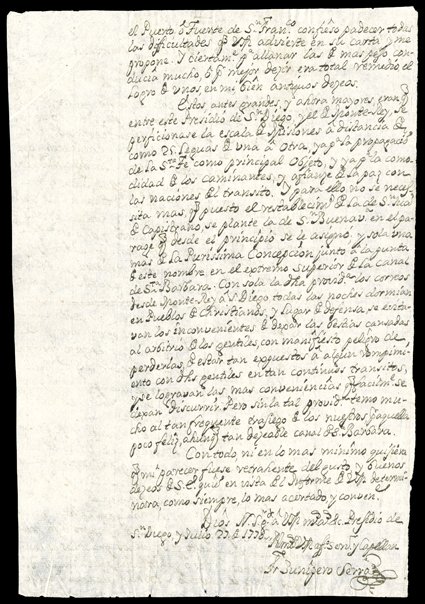 el Puerto ó Fuente de Sn. Franco. confieso padecer todas
las dificultades q Vm adviente en su carta y me
propone. Y ciertamte. pa allanar las q mas pego con-
ducia mucho, ó pr mejor dezir era total remedio el
logro de unos, en mi, bien antiguos deseos.
Estos antes grandes, y ahora mayores, eran q
entre este Presidio de Sn. Diego, y el de Monte-Rey, se
perficionase la escala de Missiones á distancia de
como 25. leguas de una á otra, ya pa la propagacion
de la Sta. Fe como principal objeto, y ya pa la como-
didad de los caminantes, y afianze de la paz con
las naciones del transito. Y para ello no se neces-
sita mas, q puesto el restablecimto. de la de Sn. Juan
de Capistrano, se plante la de Sn. Buenava. en el pa-
rage q desde el principio se le asignó, y sola una
mas de La Purissima Concepcion junto á la punta
de este nombre, en el extremo superior de la Canal
de Sta. Barbara. Con sola la dha providª. los correos
desde Monte-Rey á Sn. Diego todas las noches dormian
en Pueblos de Christianos, y lugar de defensa, se evita-
van los inconvenientes de dexar las bestias cansadas
al arbitrio de los gentiles, con manifiesto peligro de
perderlas, de estar tan expuestos á algun rompimi-
ento con dhos gentiles en tan continuos transitos,
y se logravan las mas conveniencias q facilmte. se
dexan discurrir. Pero sin la tal providª. temo mu-
cho al tan frequente trasiego de los nuestros pr aquella
poco feliz, ahunq tan dejeable canal de Sta. Barbara.
Con todo ni en lo mas minimo quisiera
q mi parecer fuese retrahente del gusto, y buenos
deseos de S. Ex. quien en vista del Informe de Vm determi-
nara, como siempre, lo mas acertado y conven.
Dios N. S. gde á Vm ms. as. Presidio de
Sn. Diego y Julio 22 de 1775.
Fr. Junipero Serra